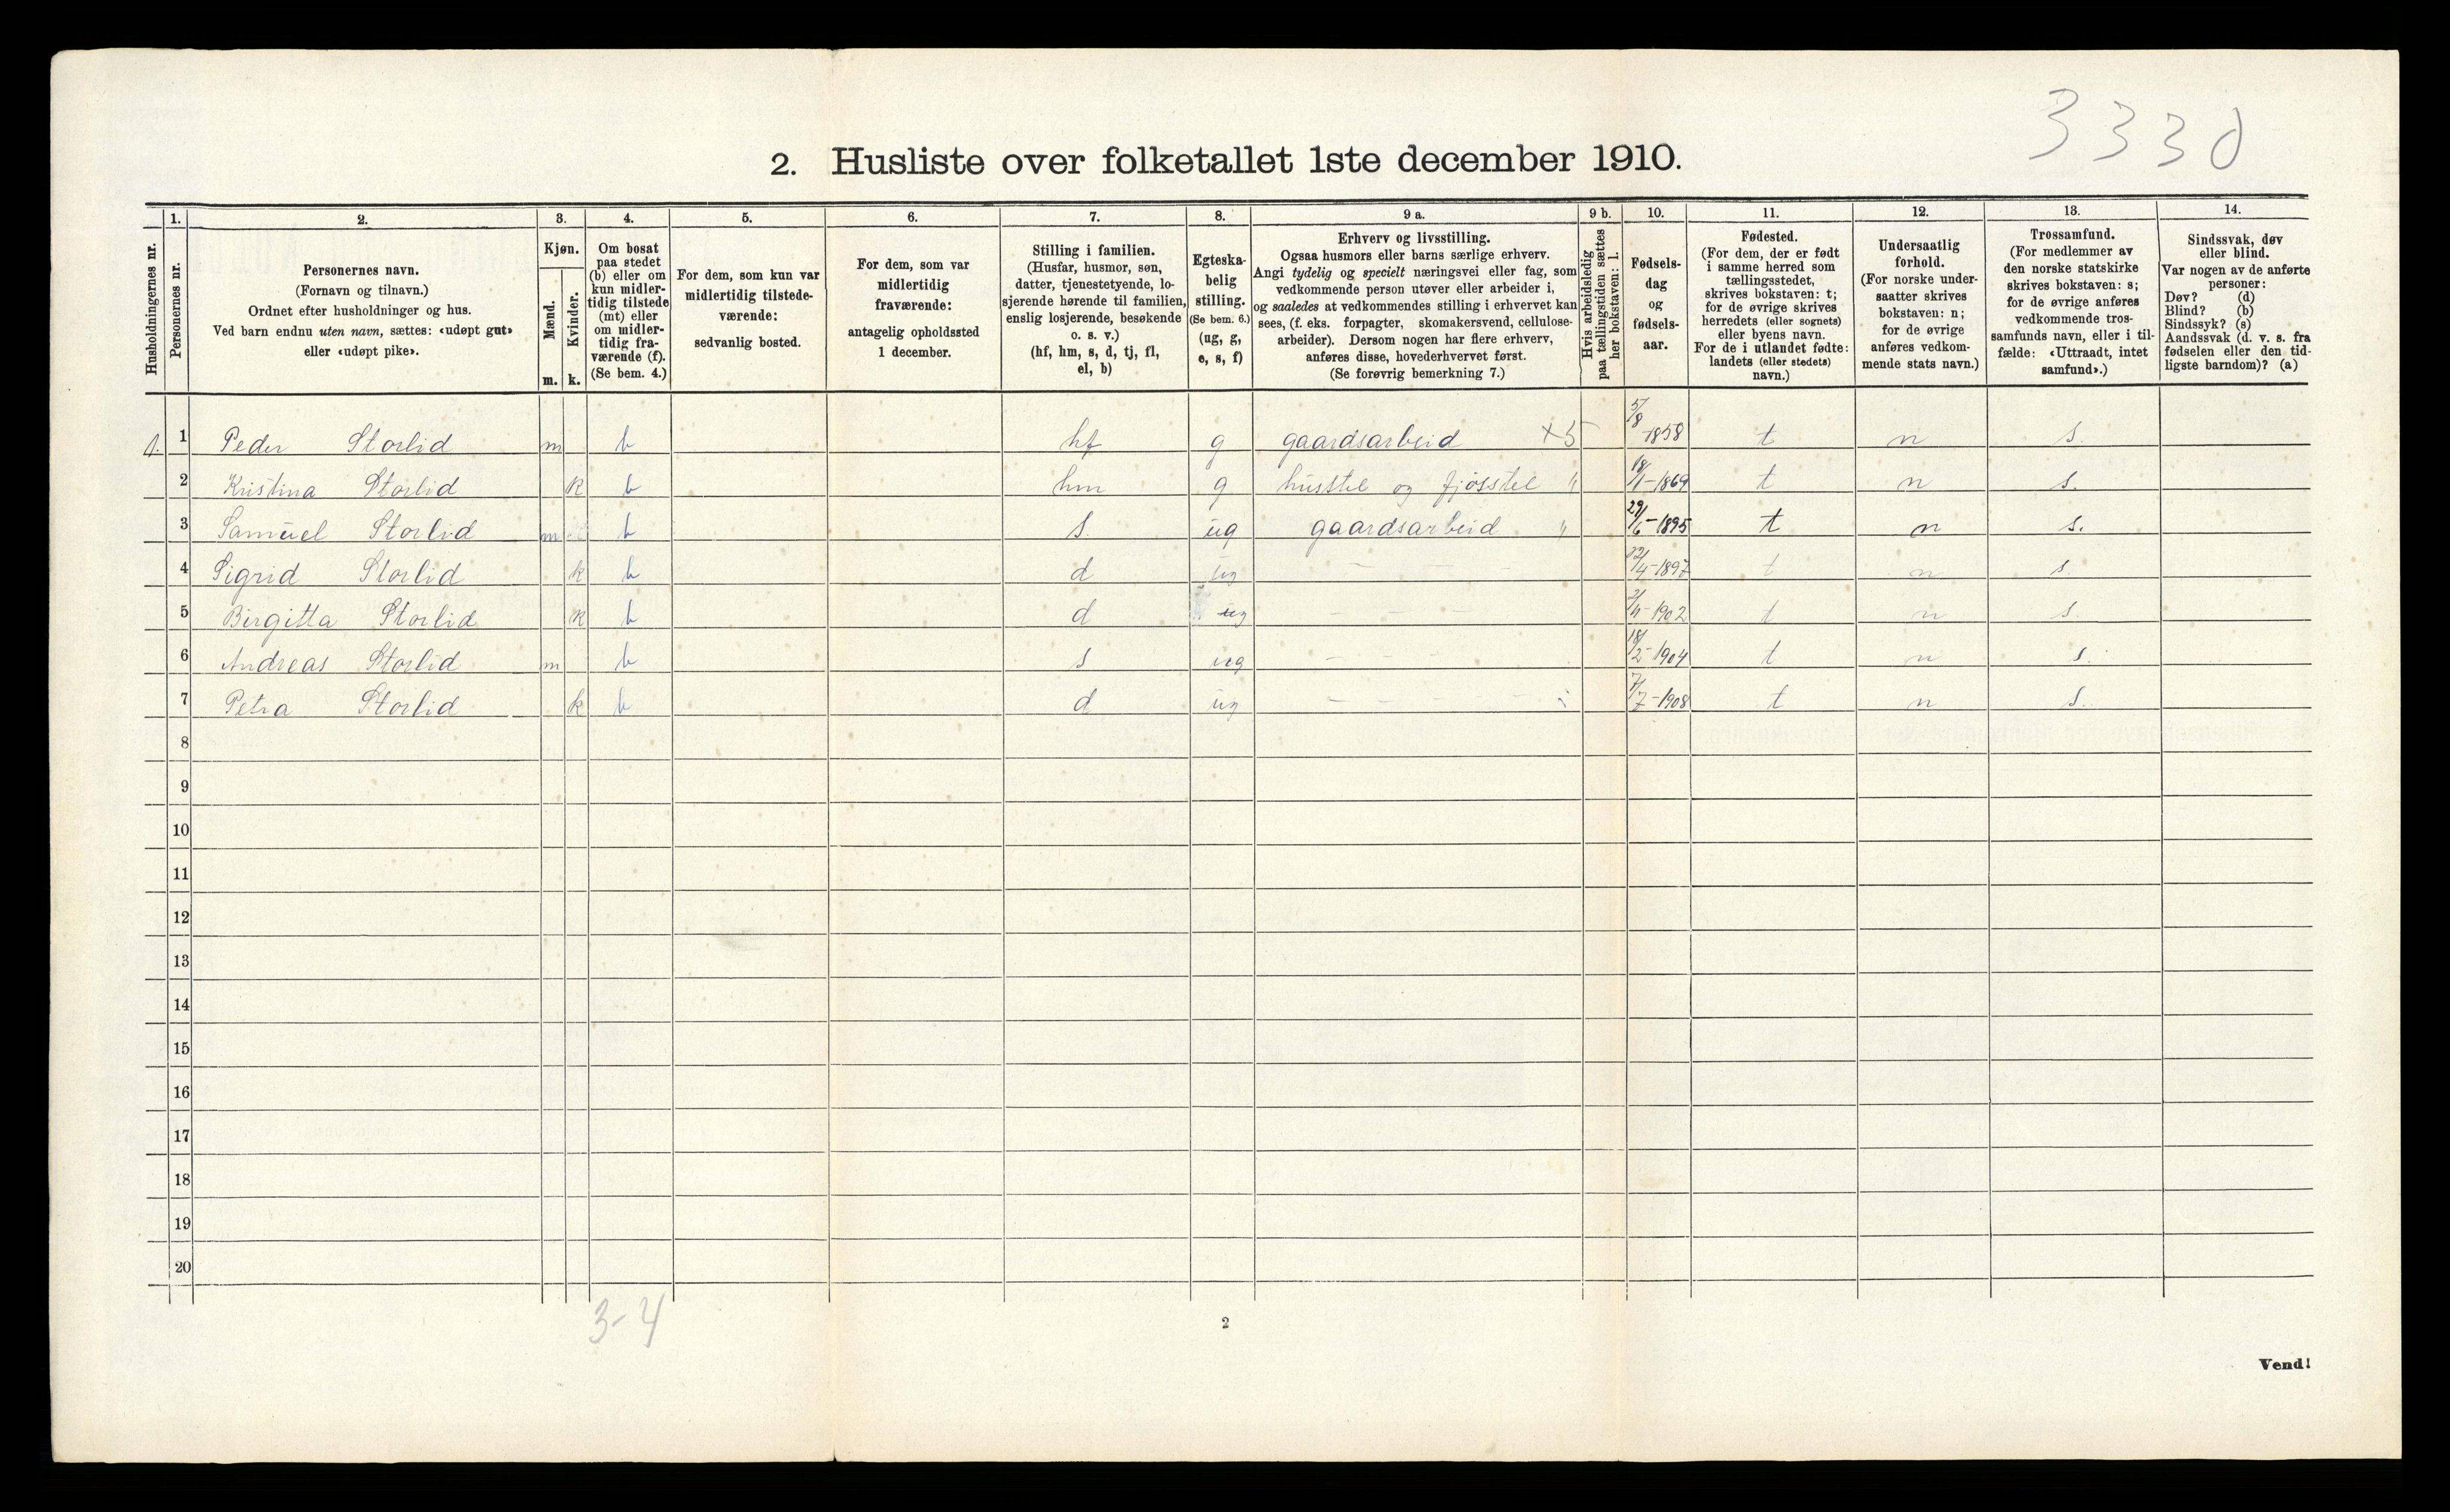 3330
2. Husliste over folketallet 1ste december 1910.
Husholdningernes nr.
1. Personernes nr.
2. Personernes navn.
(Fornavn og tilnavn.)
Ordnet efter husholdninger og hus.
Ved barn endnu uten navn, sættes: «udøpt gut»
eller «udøpt pike».
3. Kjøn.
Mænd. m.
Kvinder. k.
4. Om bosat
paa stedet
(b) eller om
kun midler-
tidig tilstede
(mt) eller
om midler-
tidig fra-
værende (f).
(Se bem. 4.)
5. For dem, som kun var
midlertidig tilstede-
værende:
sedvanlig bosted.
6. For dem, som var
midlertidig
fraværende:
antagelig opholdssted
1 december.
7. Stilling i familien.
(Husfar, husmor, søn,
datter, tjenestetyende, lo-
sjerende hørende til familien,
enslig losjerende, besøkende
o. s. v.)
(hf, hm, s, d, tj, fl,
el, b)
8. Egteska-
belig
stilling.
(Se bem. 6.)
(ug, g,
e, s, f)
9 a. Erhverv og livsstilling.
Ogsaa husmors eller barns særlige erhverv.
Angi tydelig og specielt næringsvei eller fag, som
vedkommende person utøver eller arbeider i,
og saaledes at vedkommendes stilling i erhvervet kan
sees, (f. eks. forpagter, skomakersvend, cellulose-
arbeider). Dersom nogen har flere erhverv,
anføres disse, hovederhvervet først.
(Se forøvrig bemerkning 7.)
9 b. Hvis arbeidsledig
paa tællingstiden sættes
her bokstaven: l.
10. Fødsels-
dag
og
fødsels-
aar.
11. Fødested.
(For dem, der er født
i samme herred som
tællingsstedet,
skrives bokstaven: t;
for de øvrige skrives
herredets (eller sognets)
eller byens navn.
For de i utlandet fødte:
landets (eller stedets)
navn.)
12. Undersaatlig
forhold.
(For norske under-
saatter skrives
bokstaven: n;
for de øvrige
anføres vedkom-
mende stats navn.)
13. Trossamfund.
(For medlemmer av
den norske statskirke
skrives bokstaven: s;
for de øvrige anføres
vedkommende tros-
samfunds navn, eller i til-
fælde: «Uttraadt, intet
samfund».)
14. Sindssvak, døv
eller blind.
Var nogen av de anførte
personer:
Døv? (d)
Blind? (b)
Sindssyk? (s)
Aandssvak (d. v. s. fra
fødselen eller den tid-
ligste barndom)? (a)
1. 1 Peder Storlid m b hf g gaardsarbeid X5 5/8 1858 t n s.
2 Kristina Storlid k b hm g husstel og fjøsstel " 18/1-1869 t n s.
3 Samuel Storlid m b s. ug gaardsarbeid " 29/6-1895 t n s.
4 Sigrid Storlid k b d ug - - - - 22/4-1897 t n s.
5 Birgitta Storlid k b d ug - - - 2/11-1902 t n s.
6 Andreas Storlid m b s ug - - - 18/2-1904 t n s.
7 Petra Storlid k b d ug - - - - 7/7-1908 t n s.
8
9
10
11
12
13
14
15
16
17
18
19
20
3-4
2
Vend!